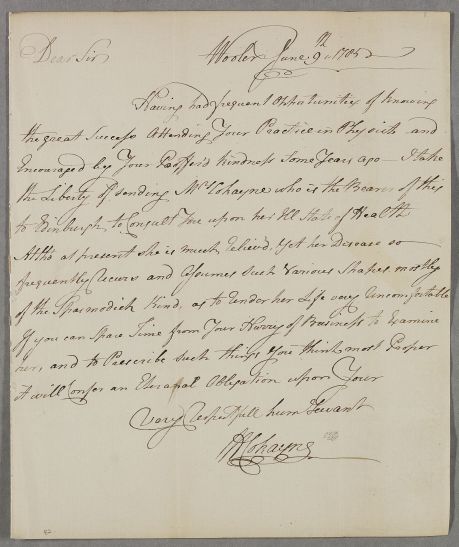 Dear Sir Wooler June 9th 1785
Having had frequent Opportunities of knowing
the great Success Attending Your Practice in Physick and
Encouraged by Your Profferd Kindness Some Years ago I take
the Liberty of sending Mrs Cohayne who is the Bearer of this
to Edinburgh to Consult You upon her Ill State of Health
Altho at present she is much reliev'd, Yet her Disease so
frequently recurs and Assumes such Various Shapes mostly
of the Spasmodick Kind, as to render her Life very Uncomfortable
If you can Spare Time from Your Hurry of Business to Examine
her, and to Prescribe such things You think most Proper
it will Confer an Eternal Obligation upon Your
Very respectfull hum Servant
Cohayne